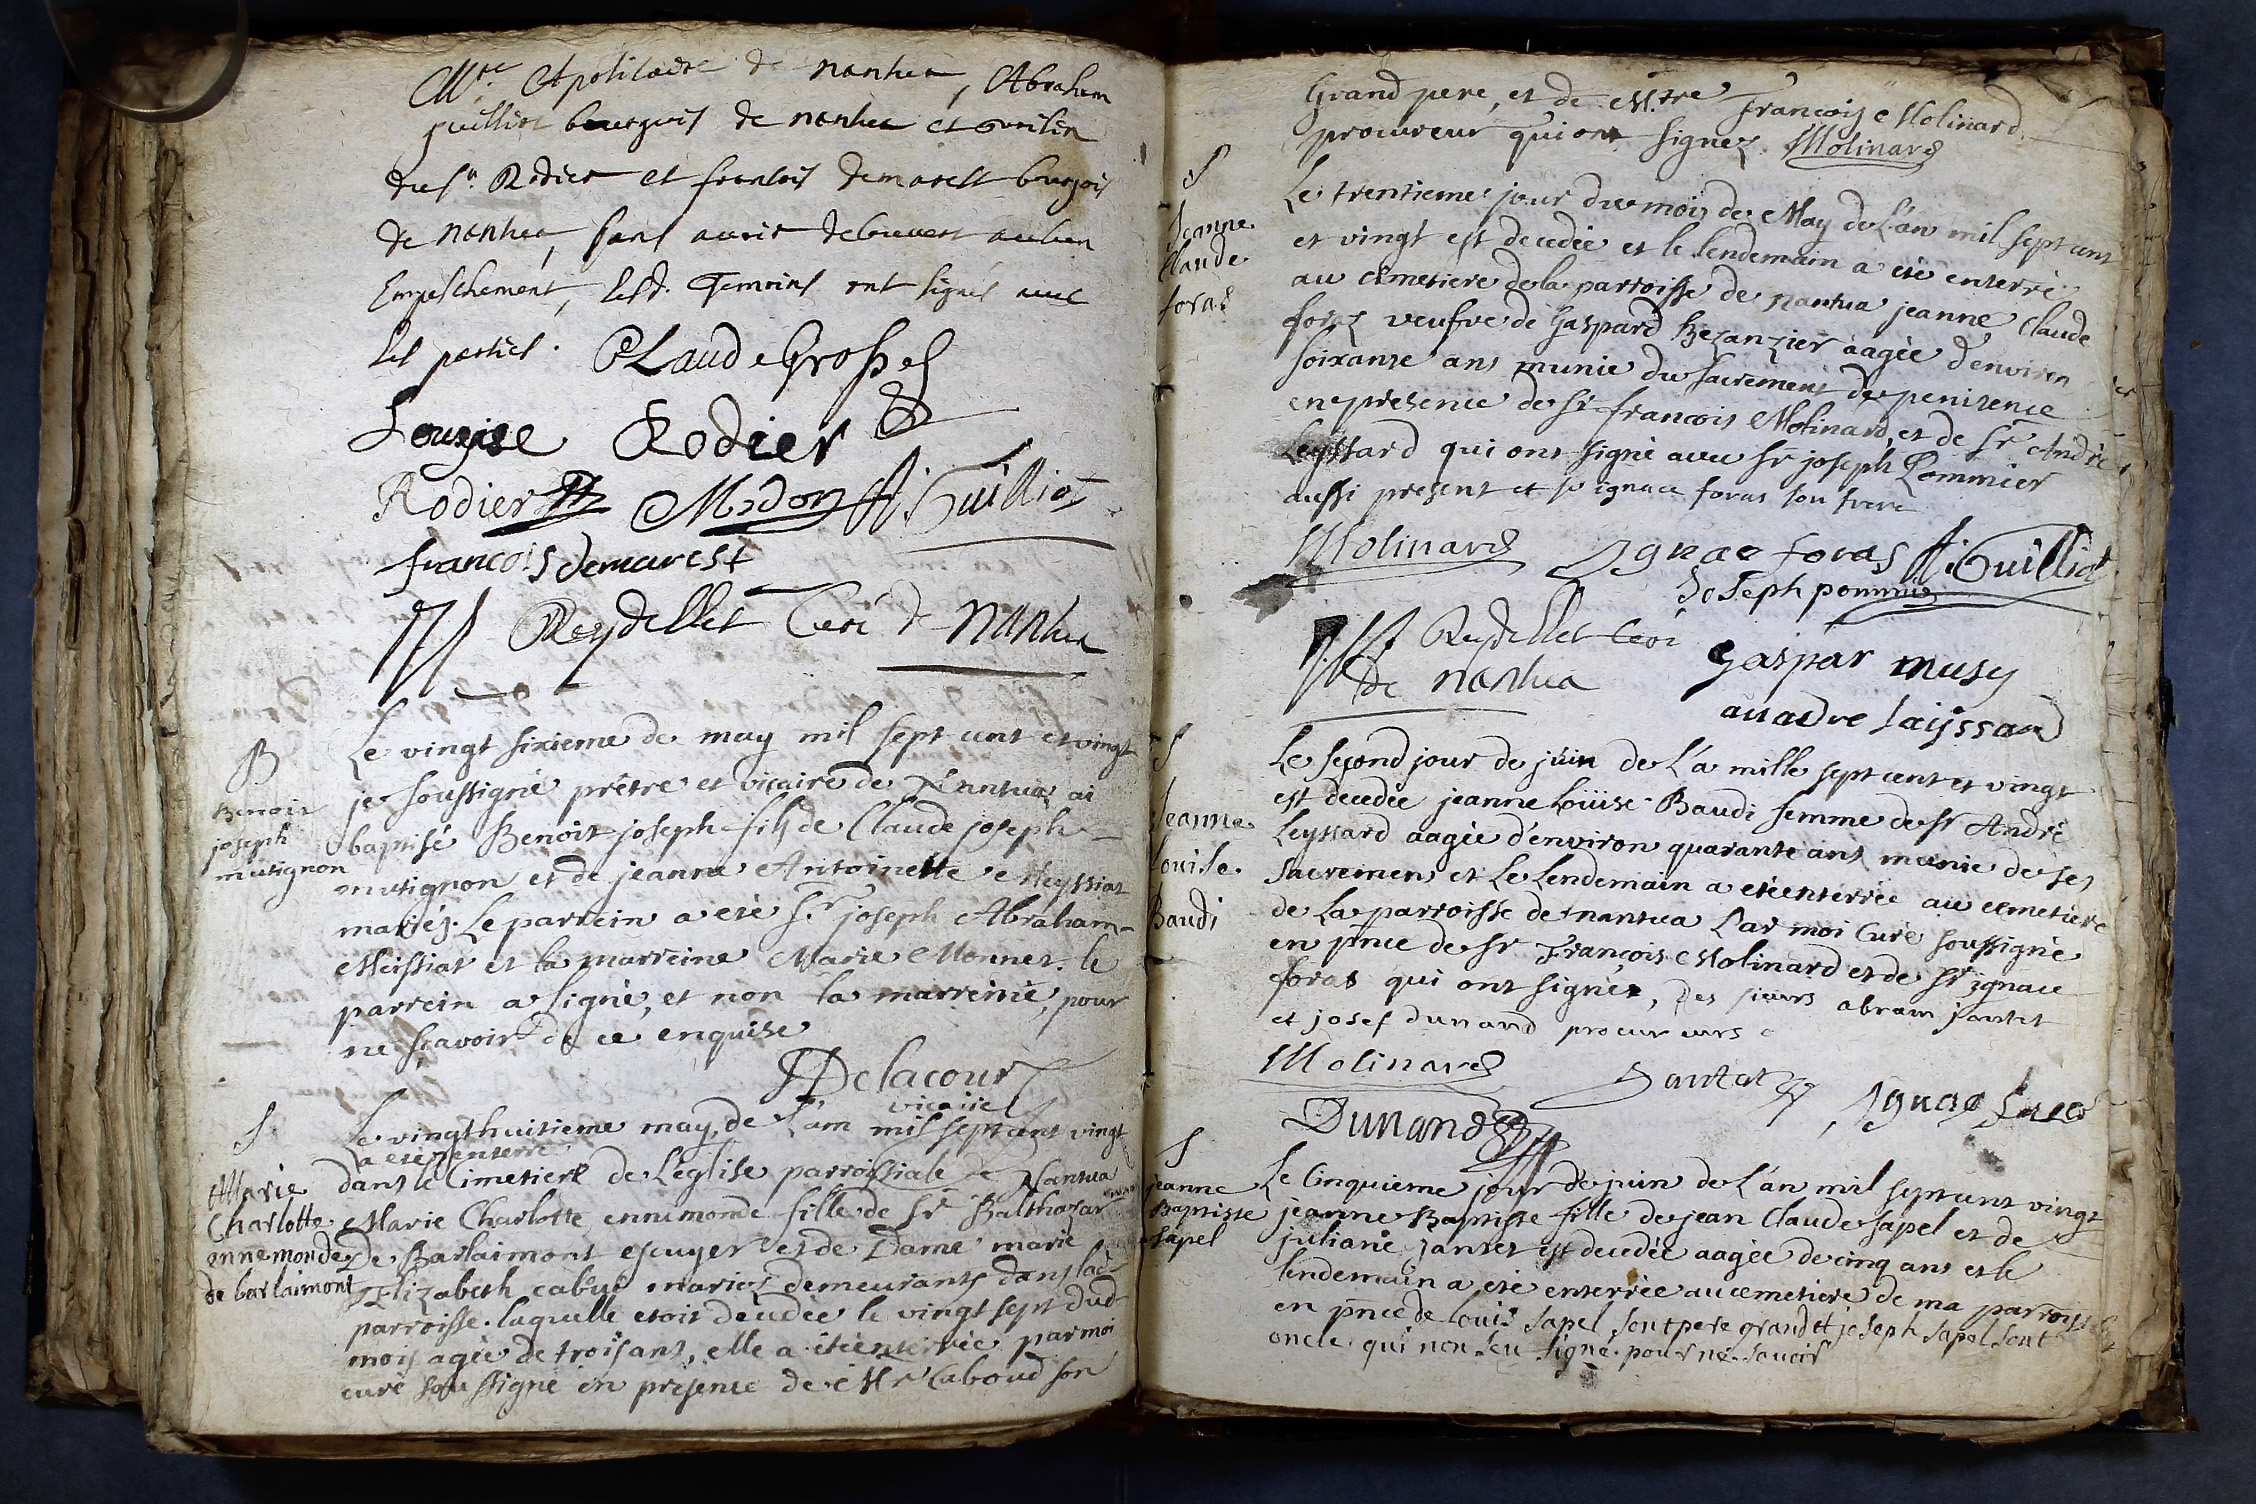 Mre. Apoticaire de nantua, Abraham
guilliot bourgois de nantua et cousin
du sr. Rodier et francois demarest bourgois
de nantua, sans avoir decouvert aucun
Empeschement, lesd. Temoins ont signés avec
les parties. CLaude Grosset
Louyise Rodier
Rodier Modon A. Guilliot
francois demarest
Reydellet Curé de nantua
B
Benoit
joseph
mutignon
Le vingt sixieme de may mil sept cent et vingt
je soussigné prêtre et vicaire de Nantua ai
baptisé Benoit joseph fils de Claude joseph
mutignon et de jeanne Antoinette Meyssiat
mariés. Le parrein a eté Sr joseph Abraham
Meissiat et la marreine Marie Monnet. le
parrein a signé, et non la marreine, pour
ne sçavoir de ce enquise
Delacour
vicaire
S
Marie
Charlotte
ennemonde
de barlaimont
Le vingthuitieme may, de L'am mil sept cent vingt
a eté enterré
dans le Cimetiere de L'eglise parroissiale de Nantua
Marie Charlotte ennemonde fille de Sr Balthazar
De Barlaimont escuyer et de Dame marie
Elizabeth cabud mariez demeurants dans lad.
parroisse. laquelle etoit decedée le vingt sept dud.
mois agée de trois ans, elle a eté enterrée par moi
curé soussigné en presence de Mr Caboud son
Grand pere, et de M.tre Francois Molinard
procureur qui ont signez. Molinard
S
Jeanne
Claude
foras
Le trentieme jour du mois de May de L'an mil sept cent
et vingt est decedée et le lendemain a eté enterré
au cemetiere de la parroisse de nantua jeanne Claude
foras veufve de Gaspard Bezanzier aagée d'environ
soixante ans munie du sacrement de penitence
en presence de Sr francois Molinard, et de Sr André
Leyssard qui ont signé avec Sr joseph Pommier
aussi present et Sr ignace foras son frere
Molinard Ignace foras A. Guilliot
Joseph pommier
Reydellet Curé
de nantua Gaspar musy
andre laissard
S
Jeanne
Louise
Baudi
Le second jour de juin de L'a mille sept cent et vingt
est decedée jeanne Loüise Baudi femme de Sr André
Leyssard aagée d'environ quarante ans munie de ses
sacremens et Le Lendemain a eté enterrée au cemetiere
de La parroisse de nantua Par moi Curé soussigné
en pnce de Sr François Molinard et de Sr ignace
foras qui ont signés, des sieurs abram jantet
et josef dunand procureurs
Molinard Jantet Ignace foras
Dunand
S
jeanne
Baptiste
Sapel
Le Cinquieme jour de juin de L'an mil sept cent vingt
jeanne Baptiste fille de jean Claude Sapel et de
juliane jantet est decedée aagée de cinq ans et le
lendemain a eté enterrée au cemetiere de ma parroisse
en pnce de Louis Sapel sont pere grand et joseph Sapel sont
oncle qui non seu signé pour ne savoir